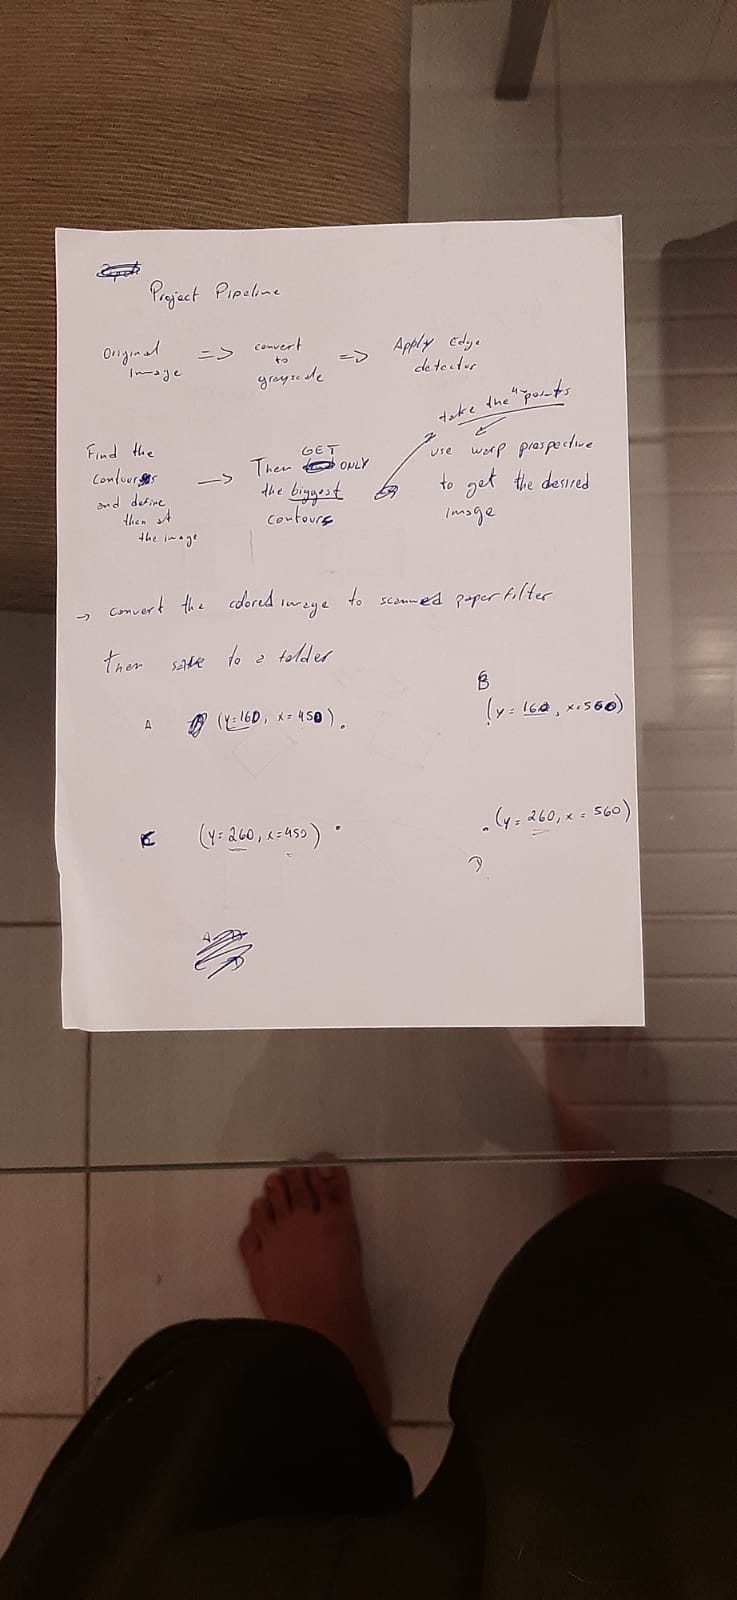 Project Pipeline
Original
image
=>
convert
to
grayscale
=>
Apply Edge
detector
Find the
contours
and define
then at
the image
->
GET
Then ONLY
the biggest
contours
take the 4 points
use warp prespective
to get the desired
image
-> convert the colored image to scanned paper filter
then save to a folder
A (y=160, x=450).
B
(y=160, x=560)
C (y=260, x=450)
.(y=260, x=560)